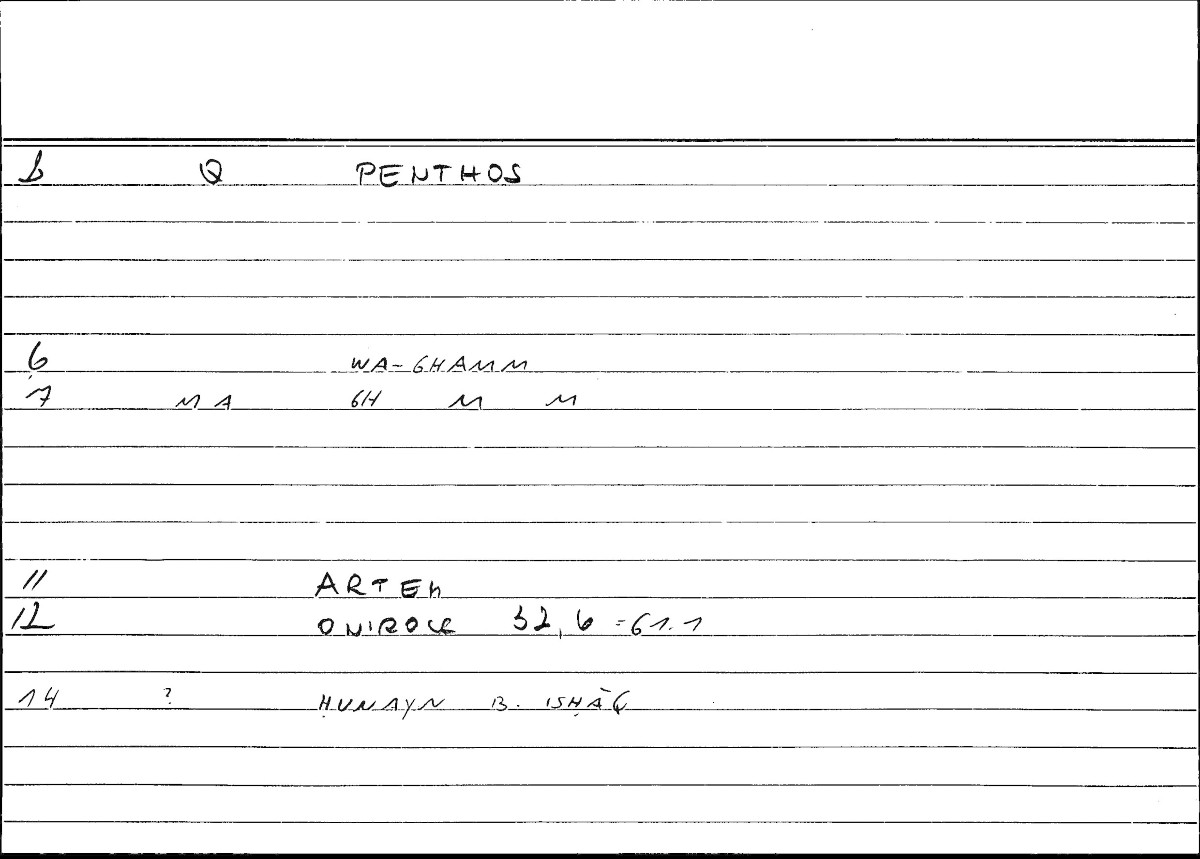 1 Q PENTHOS
6 WA-GHAMM
7 MA GH M M
11 ARTEM
12 ONIROCR 32,6 =61.1
14 ? ḤUNAYN B. ISḤĀQ